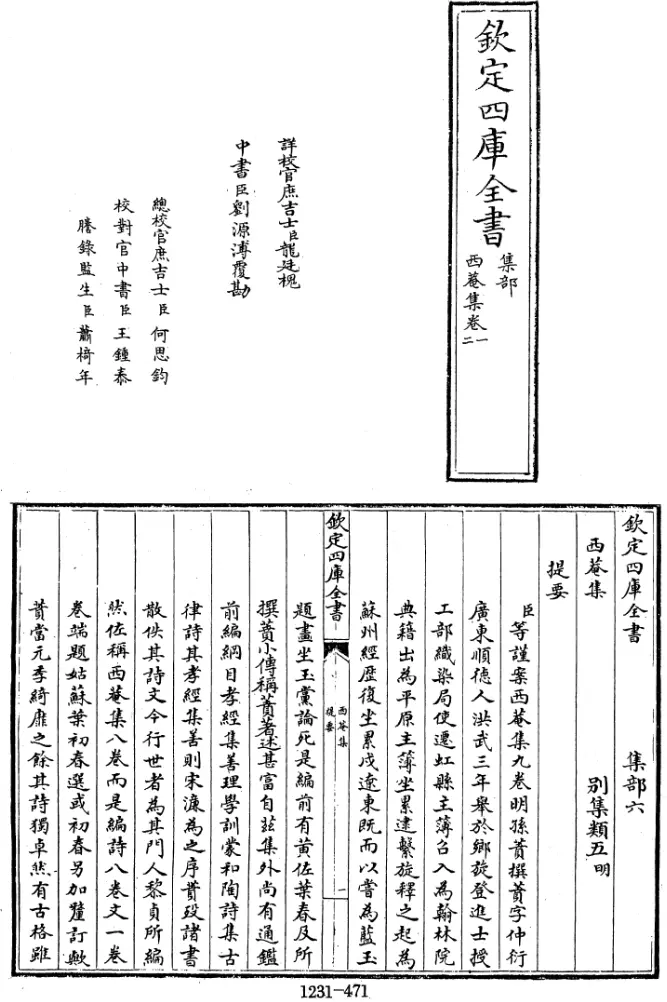 欽定四庫全書
集部
西菴集卷一
二
詳校官庶吉士臣龍廷槐
中書臣劉源溥覆勘
總校官庶吉士臣何思鈞
校對官中書臣王鍾泰
謄錄監生臣蕭椅年
欽定四庫全書 集部六
西菴集 別集類五明
提要
臣等謹案西菴集九卷明孫蕡撰蕡字仲衍
廣東順徳人洪武三年舉於鄉旋登進士授
工部織染局使遷虹縣主簿召入為翰林院
典籍出為平原主簿坐累逮繫旋釋之起為
蘇州經歴復坐累戍遼東既而以嘗為藍玉
欽定四庫全書
西菴集
提要
一
題畫坐玉黨論死是編前有黄佐葉春及所
撰蕡小傳稱蕡著述甚富自兹集外尚有通鑑
前編綱目孝經集善理學訓蒙和陶詩集古
律詩其孝經集善則宋濂為之序蕡殁諸書
散佚其詩文今行世者為其門人黎貞所編
然佐稱西菴集八卷而是編詩八卷文一卷
卷端題姑蘇葉初春選或初春另加釐訂歟
蕡當元季綺靡之餘其詩獨卓然有古格雖
1231-471